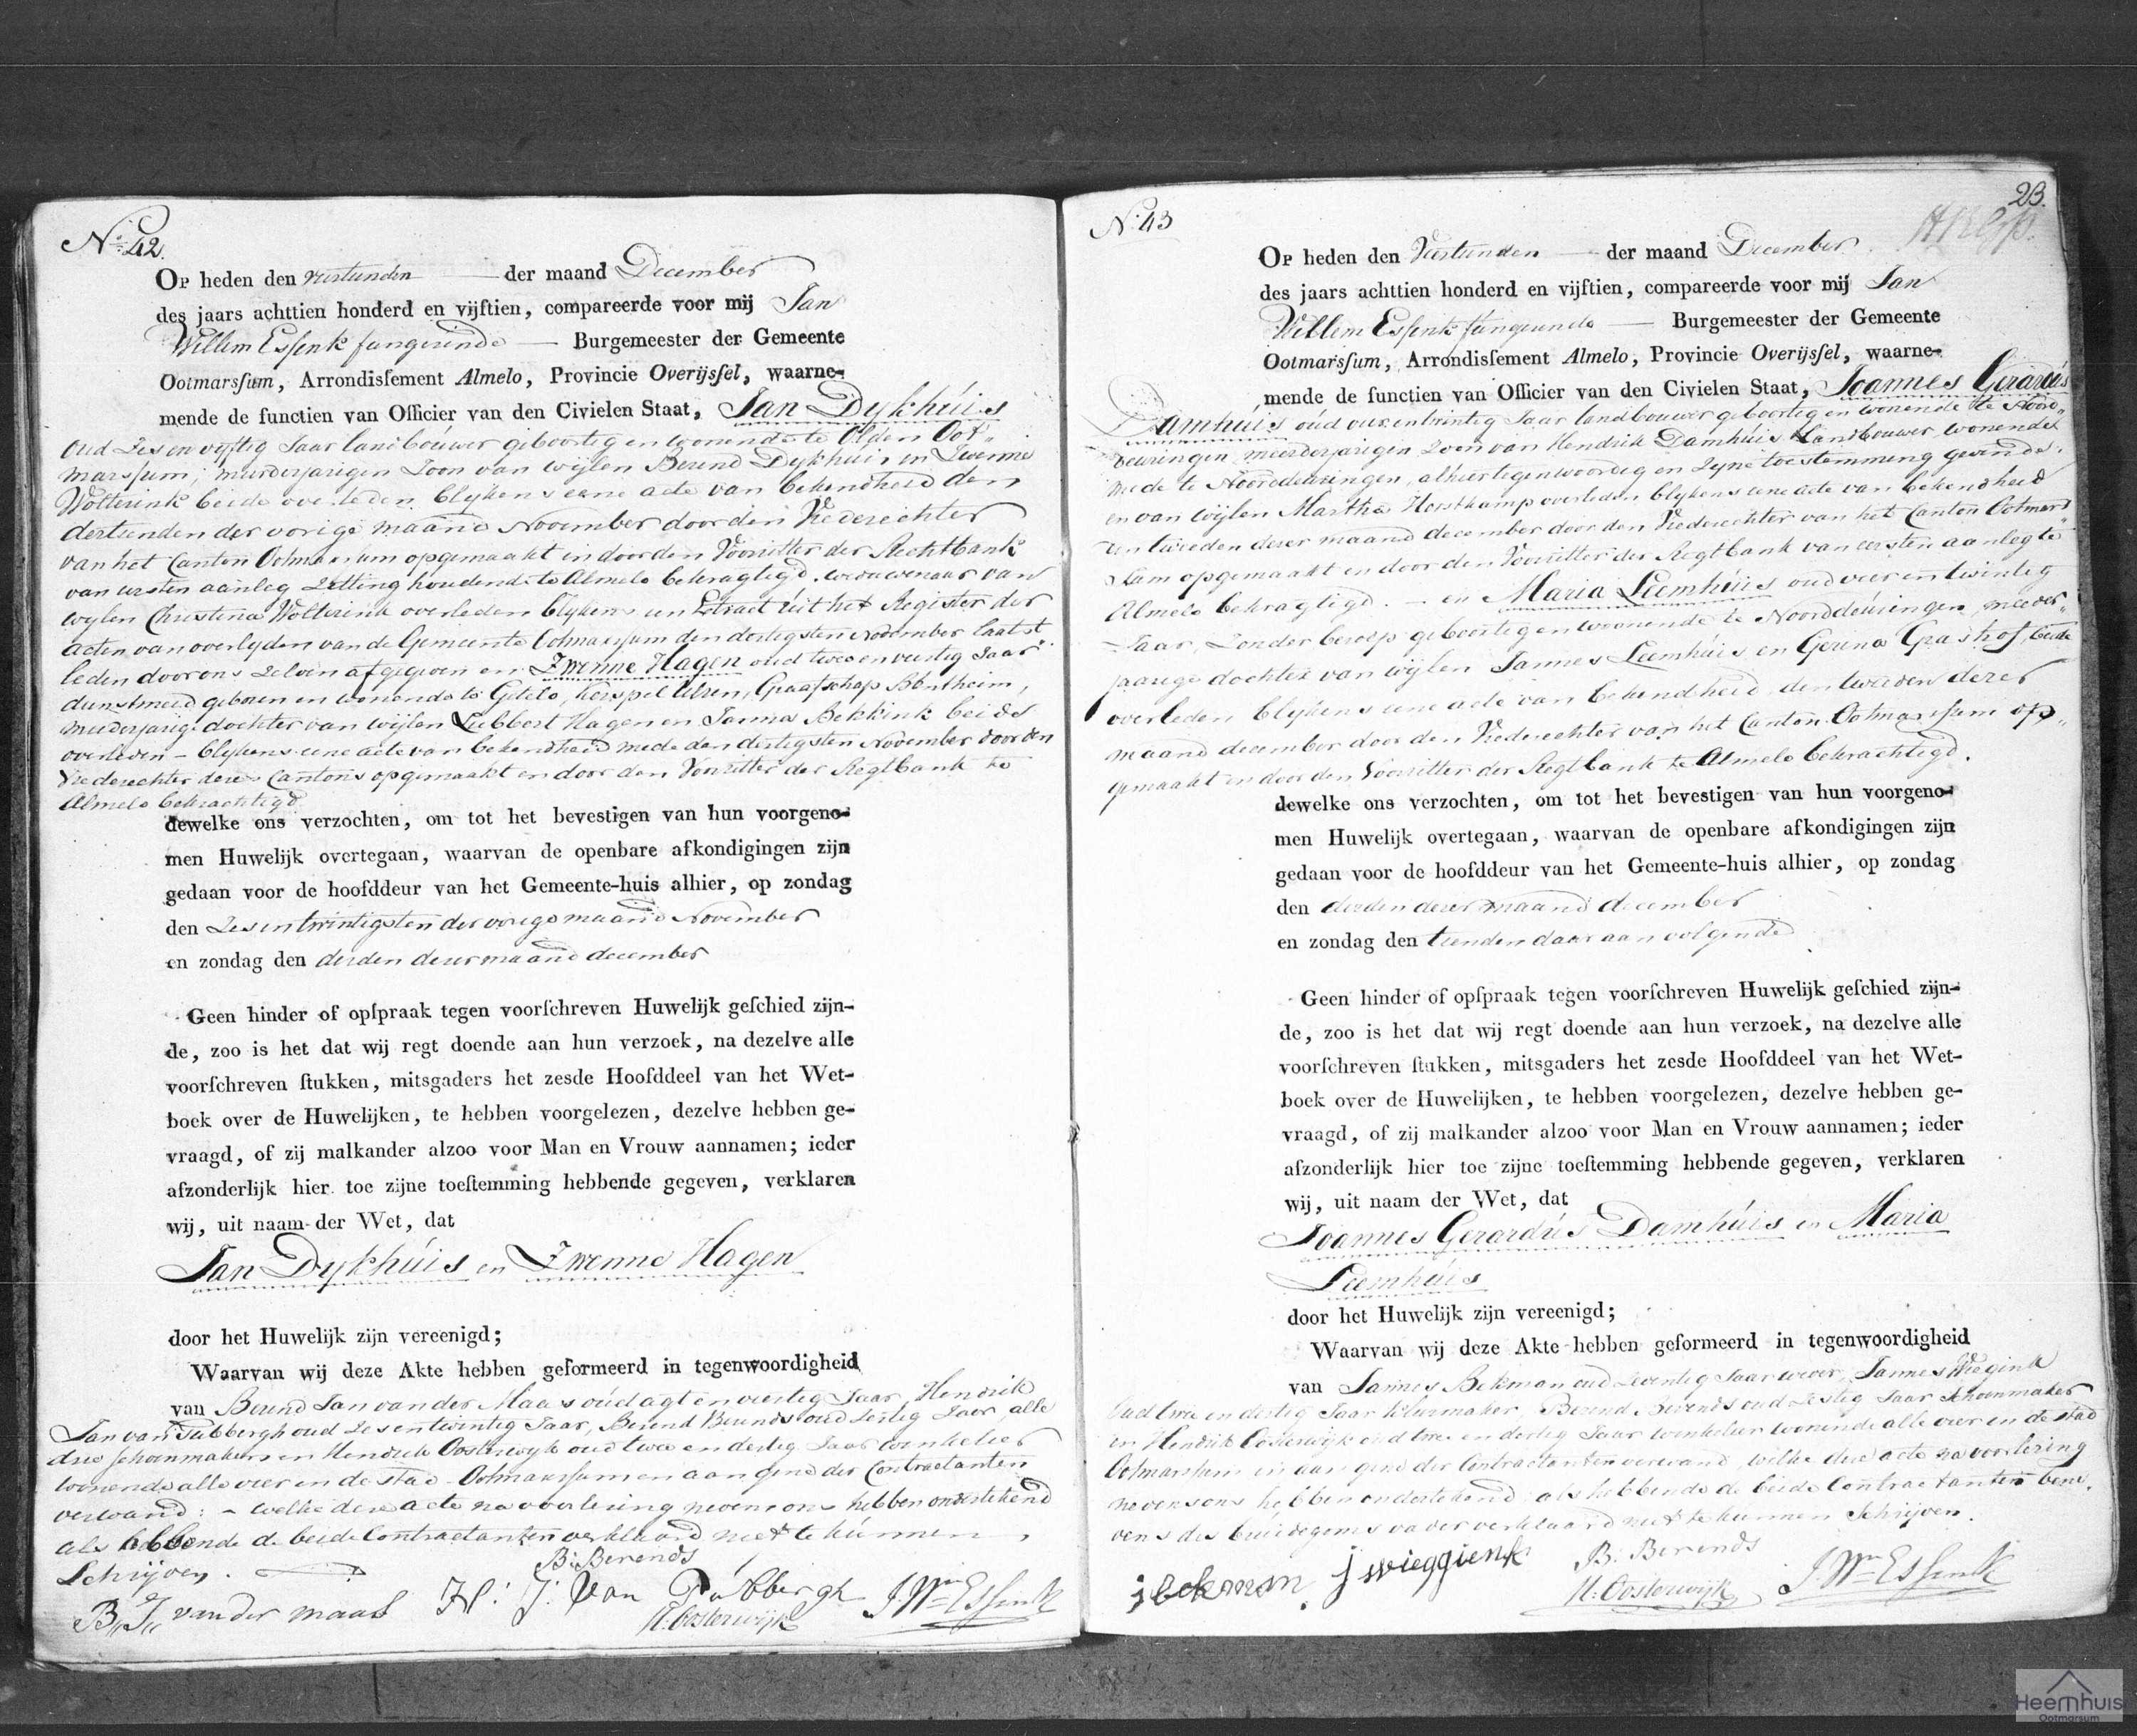 No. 42.
Op heden den viertienden der maand December
des jaars achttien honderd en vijftien, compareerde voor mij Jan
Willem Essink fungerende Burgemeester der Gemeente
Ootmarsſum, Arrondisſement Almelo, Provincie Overijsſel, waarne-
mende de functien van Officier van den Civielen Staat, Jan Dykhúis
oud Zes en vyftig Jaar landbóuwer geboortig en wonende te Olden Oot-
marssum, meerderjarigen Zoon van wylen Berend Dykhuis en Zwenne
Wolterink beide overleden blykens eene acte van bekendheid den
dertienden der vorige maand November door den Vrederechter
van het Canton Ootmarssum opgemaakt en door den Voorzitter der Rechtbank
van eersten aanleg Zitting houdende te Almelo bekragtigd. weduwenaar van
wylen Christina Wolterink overleden blykens een Extract uit het Register der
acten van overlyden van de Gemeente Ootmarssum den dertigsten November laatst
leden door ons Zelven afgegeven en Zwenne Hagen oud twee en veertig Jaar
dienstmeid geboren en wonende te Getelo, Kerspel Ulsen, Graafschap Bentheim,
meerderjarige dochter van wijlen Lubbert Hagen en Janna Bekkink beide
overleden – blykens eene acte van bekendheid mede den dertigsten November door den
Vrederechter dezes Cantons opgemaakt en door den Voorzitter der Regtbank te
Almelo bekrachtigd
dewelke ons verzochten, om tot het bevestigen van hun voorgeno-
men Huwelijk overtegaan, waarvan de openbare afkondigingen zijn
gedaan voor de hoofddeur van het Gemeente-huis alhier, op zondag
den Zesentwintigsten der vorige maand November
en zondag den derden dezer maand december
Geen hinder of opſpraak tegen voorſchreven Huwelijk geſchied zijn-
de, zoo is het dat wij regt doende aan hun verzoek, na dezelve alle
voorſchreven ſtukken, mitsgaders het zesde Hoofddeel van het Wet-
boek over de Huwelijken, te hebben voorgelezen, dezelve hebben ge-
vraagd, of zij malkander alzoo voor Man en Vrouw aannamen; ieder
afzonderlijk hier toe zijne toeſtemming hebbende gegeven, verklaren
wij, uit naam der Wet, dat
Jan Dykhúis en Zwenne Hagen
door het Huwelijk zijn vereenigd;
Waarvan wij deze Akte hebben geformeerd in tegenwoordigheid
van Berend Jan van der Maas oúd agt en veertig Jaar, Hendrik
Jan van Tubbergh oud Zes en twintig Jaar, Berend Berends oud Zestig Jaar alle
drie schoenmakers en Hendrik Oosterwyk oud twee en dertig Jaar winkelier
wonende alle vier in de stad Ootmarssum en aan gene der Contractanten
verwand: – welke deze acte na voorlezing nevens ons hebben onderteekend
als hebbende de beide Contractanten verklaard niet te kúnnen
Schrijven.
B: Berends
B,, J,, van der maas H: J: Van Tubbergh J. Wm Essink
H: Oosterwijk
23.
N. 43
Op heden den Viertienden der maand December
des jaars achttien honderd en vijftien, compareerde voor mij Jan
Willem Essink fúngerende Burgemeester der Gemeente
Ootmarsſum, Arrondisſement Almelo, Provincie Overijsſel, waarne-
mende de functien van Officier van den Civielen Staat, Joannes Gerardús
Damhúis oúd vier en twintig Jaar landbouwer geboortig en wonende te Noord-
deuringen meerderjarigen Zoon van Hendrik Damhúis Landbouwer, wonende
mede te Noorddeuringen, alhier tegenwoordig en Zyne toestemming gevende,
en van wijlen Martha Horstkamp overleden blykens eene acte van bekendheid
den tweeden dezer maand december door den Vrederechter van het Canton Ootmars-
sum opgemaakt en door den Voorzitter der Regtbank van eersten aanleg te
Almelo bekragtigd. – en Maria Leemhúis oud vier en twintig
Jaar, Zonder beroep geboortig en woonende te Noorddeúringen, meeder-
jaarige dochter van wijlen Jannes Leemhúis en Gerina Grashof, beide
overleden blykens eene acte van bekendheid den tweeden dezer
maand december door den Vrederechter van het Canton Ootmarssum op-
gemaakt en door den Voorzitter der Regtbank te Almelo bekrachtigd.
dewelke ons verzochten, om tot het bevestigen van hun voorgeno-
men Huwelijk overtegaan, waarvan de openbare afkondigingen zijn
gedaan voor de hoofddeur van het Gemeente-huis alhier, op zondag
den derden dezer maand december
en zondag den tienden daar aan volgende
Geen hinder of opſpraak tegen voorſchreven Huwelijk geſchied zijn-
de, zoo is het dat wij regt doende aan hun verzoek, na dezelve alle
voorſchreven ſtukken, mitsgaders het zesde Hoofddeel van het Wet-
boek over de Huwelijken, te hebben voorgelezen, dezelve hebben ge-
vraagd, of zij malkander alzoo voor Man en Vrouw aannamen; ieder
afzonderlijk hier toe zijne toeſtemming hebbende gegeven, verklaren
wij, uit naam der Wet, dat
Joannes Gerardús Damhúis en Maria
Leemhúis
door het Huwelijk zijn vereenigd;
Waarvan wij deze Akte hebben geformeerd in tegenwoordigheid
van Jannes Bekman oud Zeventig Jaar wever, Jannes Wiegink
Oud twee en dertig Jaar kleermaker, Berend Berends oud Zestig Jaar schoenmaker
en Hendrik Oosterwijk oud twee en dertig Jaar winkelier wonende alle vier in de stad
Ootmarssum en aan gene der Contractanten verwand, welke deze acte na voorlezing
nevens ons hebben onderteekend als hebbende de beide Contractanten bene-
vens des bruidegoms vader verklaard niet te kunnen Schrijven.
j bekman j wieggienk B: Berends
H: Oosterwijk J. Wm Essink
Heemhuis
Ootmarsum